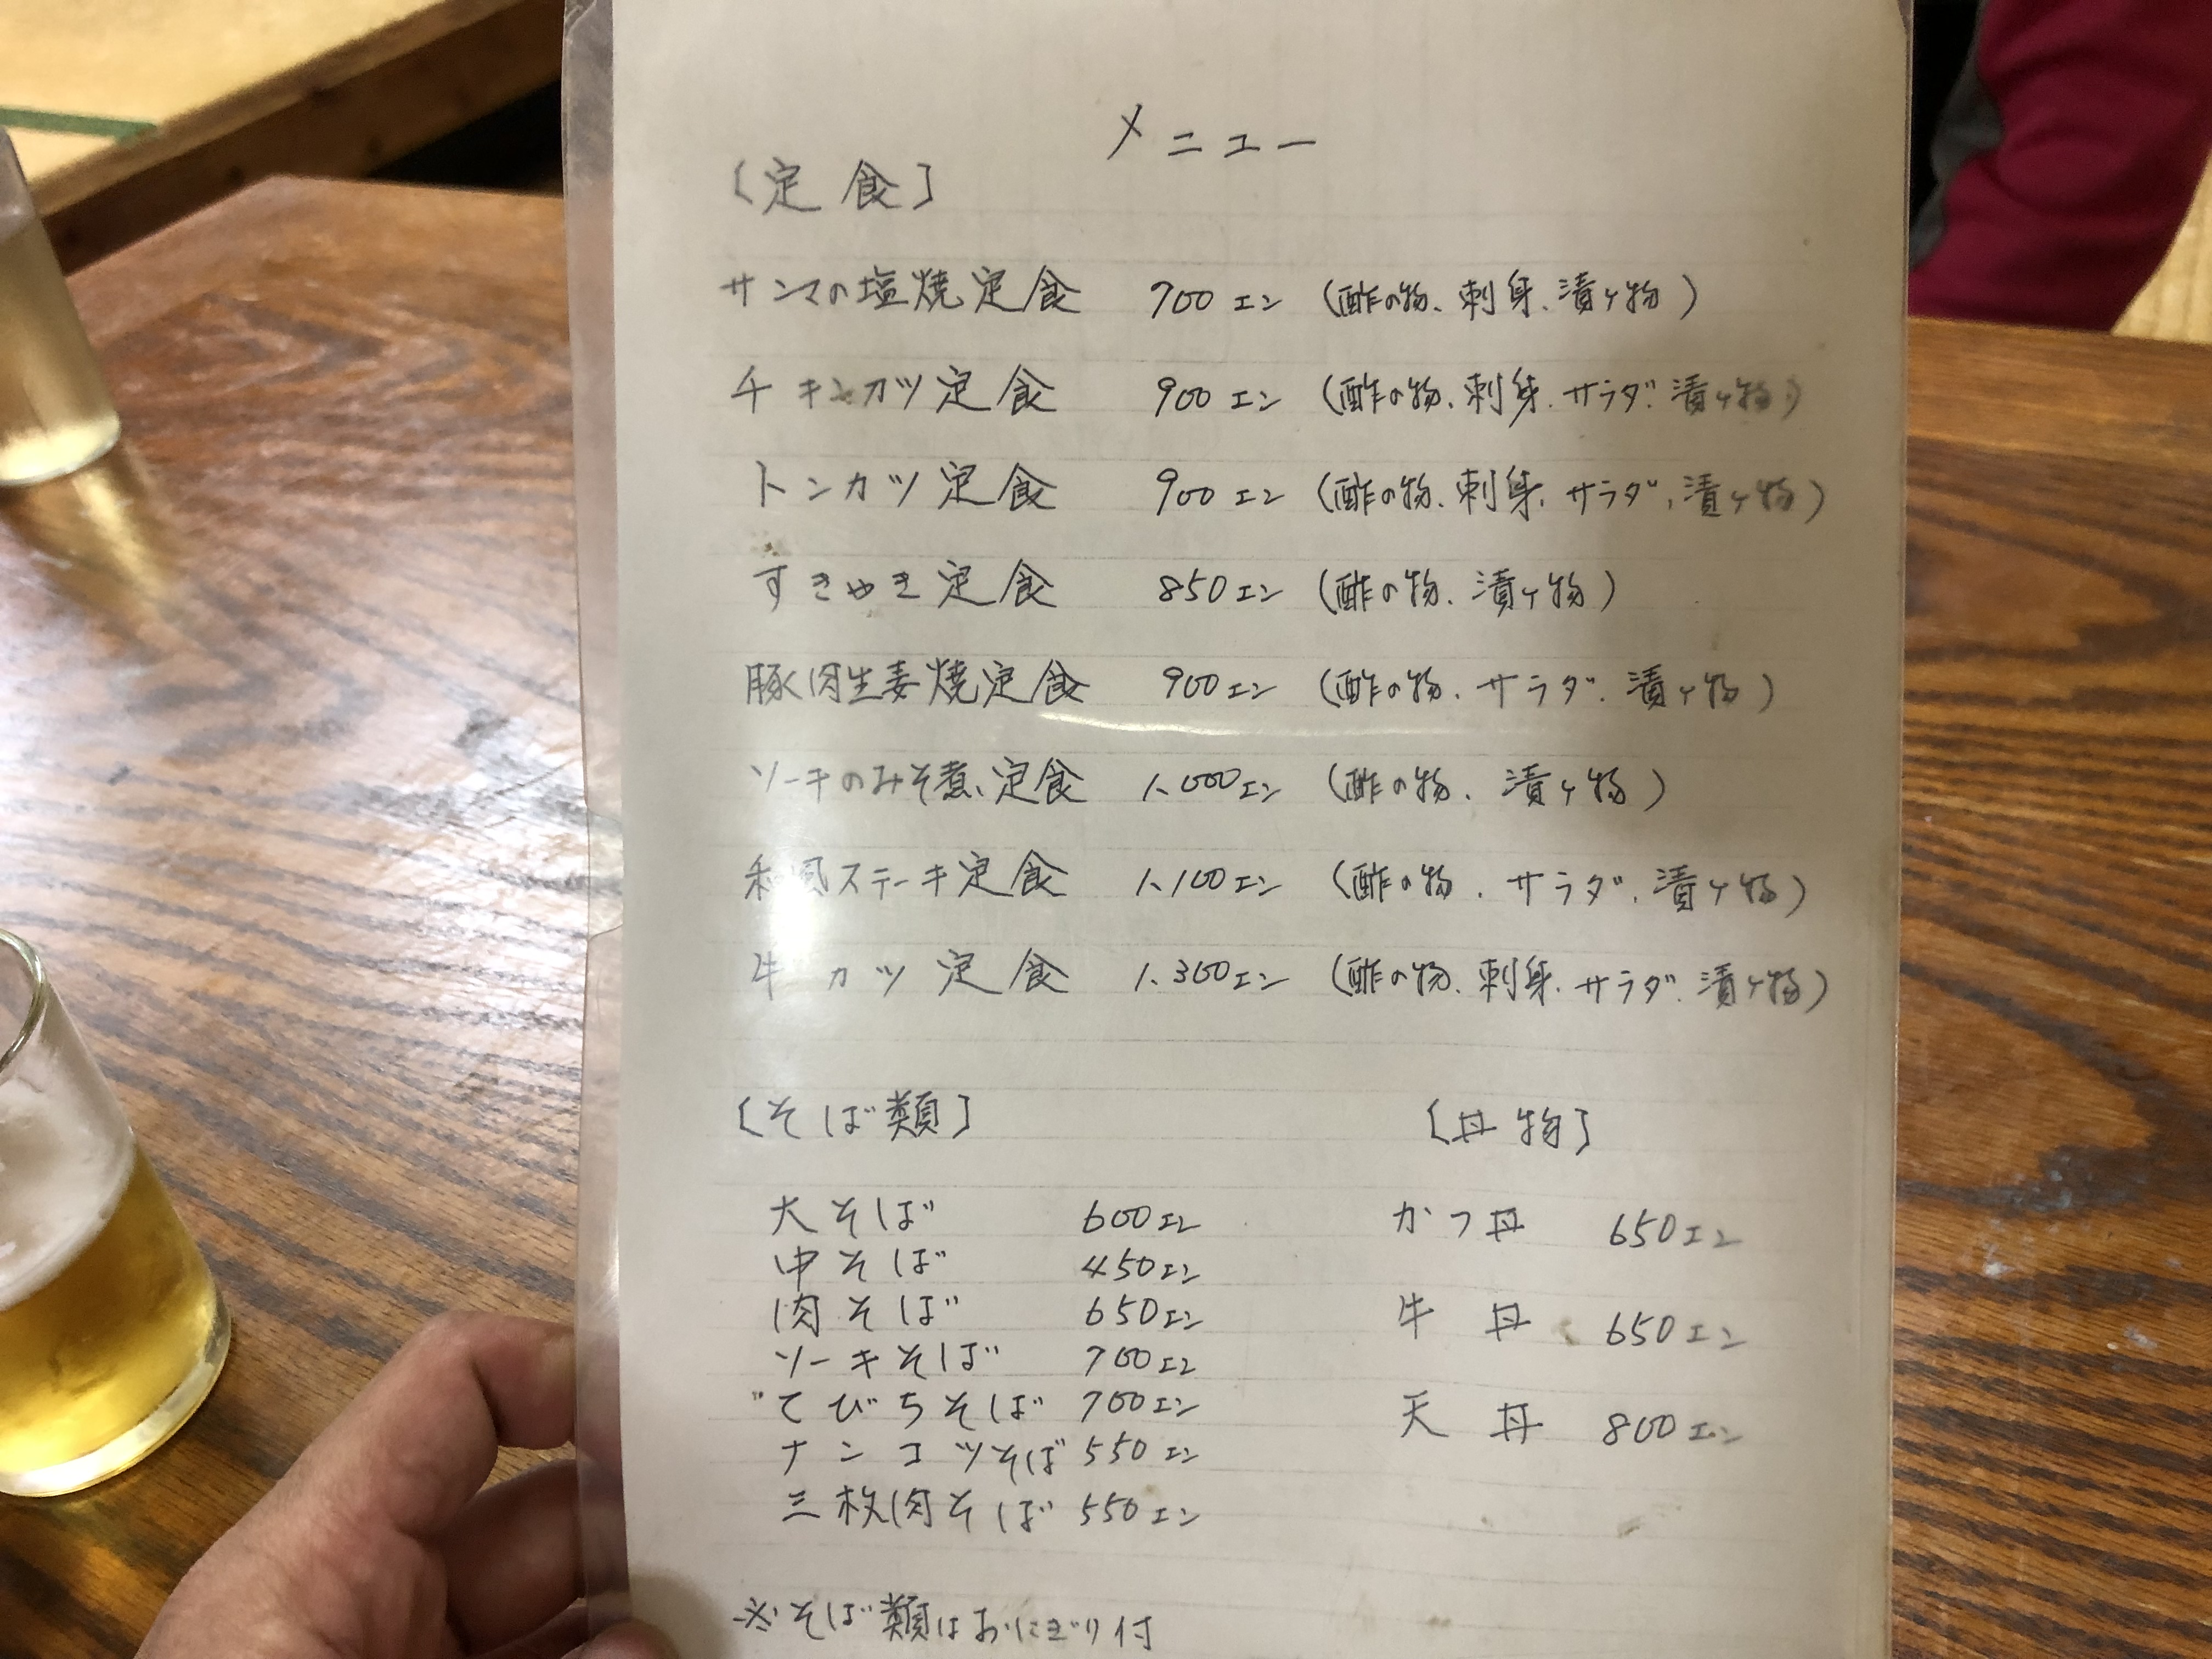 メニュー
〔定食〕
サンマの塩焼定食 700エン (酢の物、刺身、漬ケ物)
チキンカツ定食 900エン (酢の物、刺身、サラダ、漬ケ物)
トンカツ定食 900エン (酢の物、刺身、サラダ、漬ケ物)
すきやき定食 850エン (酢の物、漬ケ物)
豚肉生姜焼定食 900エン (酢の物、サラダ、漬ケ物)
ソーキのみそ煮定食 1,000エン (酢の物、漬ケ物)
和風ステーキ定食 1,100エン (酢の物、サラダ、漬ケ物)
牛カツ定食 1,300エン (酢の物、刺身、サラダ、漬ケ物)
〔そば類〕
大そば 600エン
中そば 450エン
肉そば 650エン
ソーキそば 700エン
てびちそば 700エン
ナンコツそば 550エン
三枚肉そば 550エン
※そば類はおにぎり付
〔丼物〕
かつ丼 650エン
牛丼 650エン
天丼 800エン